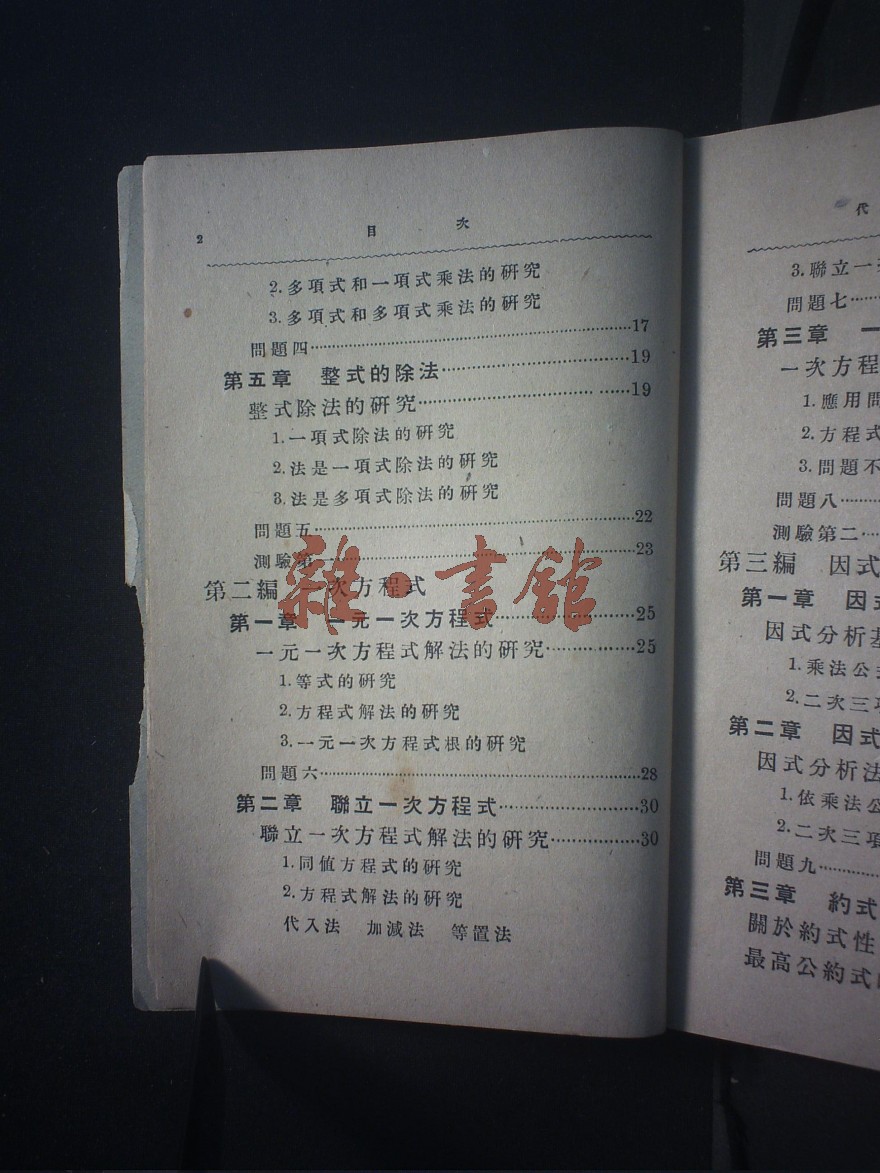 2 目 次
2.多項式和一項式乘法的研究
3.多項式和多項式乘法的研究
問題四……17
第五章 整式的除法……19
整式除法的研究……19
1.一項式除法的研究
2.法是一項式除法的研究
3.法是多項式除法的研究
問題五……22
測驗第一……23
第二編 一次方程式
第一章 一元一次方程式……25
一元一次方程式解法的研究……25
1.等式的研究
2.方程式解法的研究
3.一元一次方程式根的研究
問題六……28
第二章 聯立一次方程式……30
聯立一次方程式解法的研究……30
1.同値方程式的研究
2.方程式解法的研究
代入法 加減法 等置法
雜·書館
代
3.聯立一
問題七……
第三章 一
一次方程
1.應用問
2.方程式
3.問題不
問題八……
測驗第二…
第三編 因式
第一章 因式
因式分析基
1.乘法公
2.二次三項
第二章 因式
因式分析法
1.依乘法公
2.二次三項
問題九……
第三章 約式
關於約式性
最高公約式